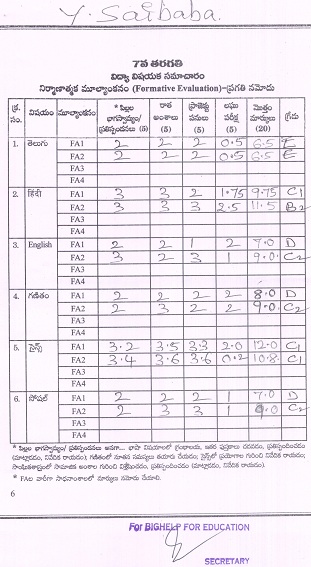 Y. Saibaba.
7వ తరగతి
విద్యా విషయక సమాచారం
నిర్మాణాత్మక మూల్యాంకనం (Formative Evaluation)-ప్రగతి నమోదు
క్ర. సం. విషయం మూల్యాంకనం * పిల్లల భాగస్వామ్యం/ ప్రతిస్పందనలు (5) రాత అంశాలు (5) ప్రాజెక్టు పనులు (5) లఘు పరీక్ష (5) మొత్తం మార్కులు (20) గ్రేడు
1. తెలుగు FA1 2 2 2 0.5 6.5 E
FA2 2 2 2 0.5 6.5 E
FA3
FA4
2. హిందీ FA1 3 3 2 1.75 9.75 C1
FA2 3 3 3 2.5 11.5 B2
FA3
FA4
3. English FA1 2 2 1 2 7.0 D
FA2 3 2 3 1 9.0 C2
FA3
FA4
4. గణితం FA1 2 2 2 2 8.0 D
FA2 2 3 2 2 9.0 C2
FA3
FA4
5. సైన్స్ FA1 3.2 3.5 3.3 2.0 12.0 C1
FA2 3.4 3.6 3.6 0.2 10.8 C1
FA3
FA4
6. సోషల్ FA1 2 2 2 1 7.0 D
FA2 2 3 3 1 9.0 C2
FA3
FA4
* పిల్లల భాగస్వామ్యం/ ప్రతిస్పందనలు అనగా... భాషా విషయాలలో గ్రంథాలయ, ఇతర పుస్తకాలు చదవడం, ప్రతిస్పందించడం
(మాట్లాడడం, నివేదిక రాయడం); గణితంలో నూతన సమస్యలు తయారు చేయడం; సైన్స్‌లో ప్రయోగాల గురించి నివేదిక రాయడం;
సాంఘికశాస్త్రంలో సామాజిక అంశాల గురించి విశ్లేషించడం, ప్రతిస్పందించడం (మాట్లాడడం, నివేదిక రాయడం).
* FAల వారీగా సాధనాంశాలలో మార్కులు నమోదు చేయాలి.
6
For BIGHELP FOR EDUCATION
SECRETARY